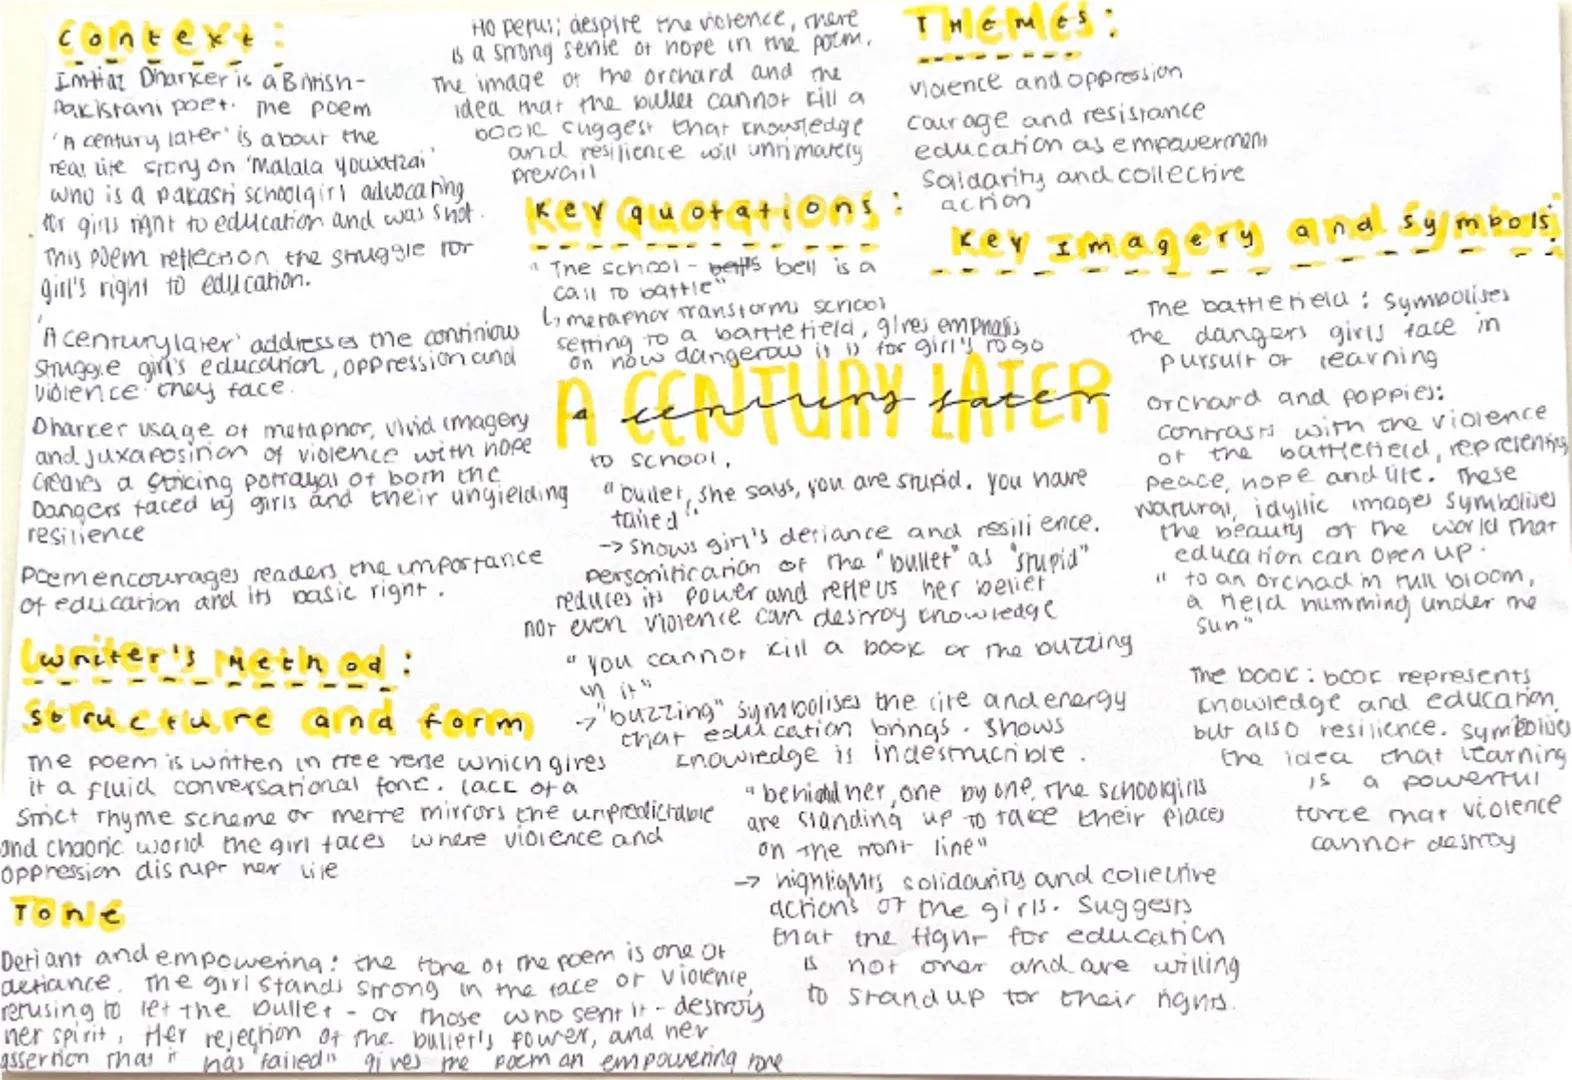 Context:
Imtiaz Dharker is a British-
Pakistani poet. The poem
'A century later' is about the
real life story on 'Malala Youxtzai'
who is a pakasti schoolgirl advocating
for girls right to education and was shot.
This poem reflection the struggle for
girl's right to education.
'A century later' addresses the continiow
struggle girl's education, oppression and
violence they face.
Dharker usage of metaphor, vivid imagery
and juxaposition of violence with hope
creates a stricing portrayal of both the
Dangers faced by girls and their unyielding
resilience
Poem encourages readers the importance
of education and its basic right.
Writer's Method:
Structure and form
The poem is written in free verse which gives
it a fluid conversational tone. Lack of a
strict rhyme scheme or metre mirrors the unpredictable
and chaotic world the girl faces where violence and
oppression disrupt her life
Tone
Defiant and empowering: the tone of the poem is one of
defiance. The girl stands strong in the face of violence,
refusing to let the bullet - or those who sent it - destroy
her spirit. Her rejection of the bullet's power, and her
assertion that it has "failed" gives the poem an empowering tone
Hopeful; despite the violence, there
is a strong sense of hope in the poem.
The image of the orchard and the
idea that the bullet cannot kill a
book suggest that knowledge
and resilience will untimately
prevail
Key quotations:
"The school - bell is a
call to battle"
↳ metaphor transforms school
setting to a battlefield, gives emphasis
on how dangerow it is for girl's to go
A CENTURY LATER
a century later
to school.
"bullet, she says, you are stupid. you have
failed".
→ shows girl's defiance and resilience.
personification of the "bullet" as "stupid"
reduces its power and reflects her belief
not even violence can destroy knowledge
"you cannot kill a book or the buzzing
in it"
→ "buzzing" symbolises the life and energy
that education brings. Shows
knowledge is indestructible.
"behind her, one by one, the schoolgirls
are standing up to take their places
on the front line"
→ highlights solidarity and collective
actions of the girls. Suggests
that the fight for education
is not over and are willing
to stand up for their rights.
THEMES:
violence and oppression
courage and resistance
education as empowerment
Solidarity and collective
action
Key Imagery and symbols:
The battlefield: symbolises
the dangers girls face in
pursuit of learning
orchard and poppies:
contrasts with the violence
of the battlefield, representing
peace, hope and life. These
natural, idyllic images symbolises
the beauty of the world that
education can open up.
"to an orchad in full bloom,
a field humming under the
sun"
The book: book represents
knowledge and education,
but also resilience. symbolises
the idea that learning
is a powerful
force that violence
cannot destroy